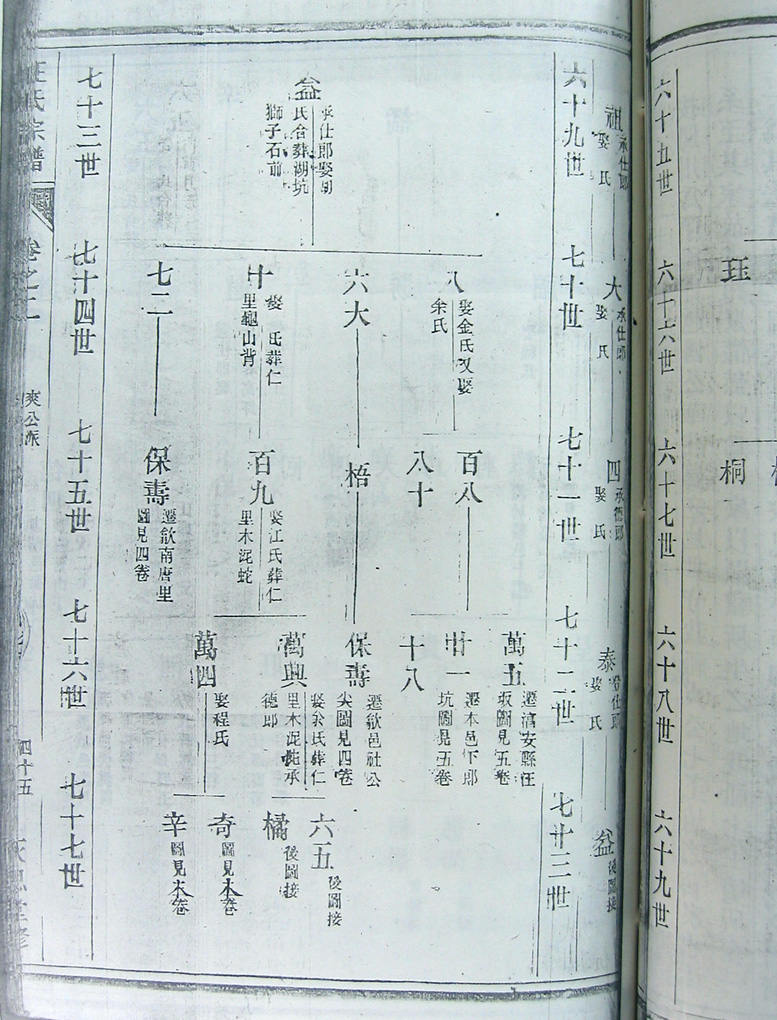 六十五世
六十六世
珏
六十七世
桐
六十八世
六十九世
祖
承仕郎
娶 氏
大
承仕郎
娶 氏
四
承德郎
娶 氏
泰
承仕郎
娶 氏
益
後圖接
六十九世
七十世
七十一世
七十二世
七十三世
益
承仕郎娶胡
氏合葬湖坑
獅子石前
八
娶金氏又娶
余氏
六大
十
娶 氏葬仁
里龜山背
七二
百八
八十
梧
百九
娶江氏葬仁
里木泥蛇
保壽
遷歙南唐里
圖見四卷
萬五
遷淳安縣汪
坂圖見五卷
廿一
遷本邑下郎
坑圖見五卷
十八
保壽
遷歙邑社公
尖圖見四卷
萬興
娶余氏葬仁
里木泥蛇承
德郎
萬四
娶程氏
六五
後圖接
橘
後圖接
奇
圖見本卷
辛
圖見本卷
七十三世
七十四世
七十五世
七十六世
七十七世
汪氏宗譜
卷之二
爽公派
四十五